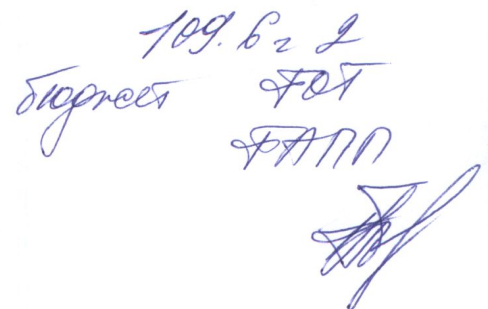 109.6 г 2
бюджет ФОТ
ФАПП